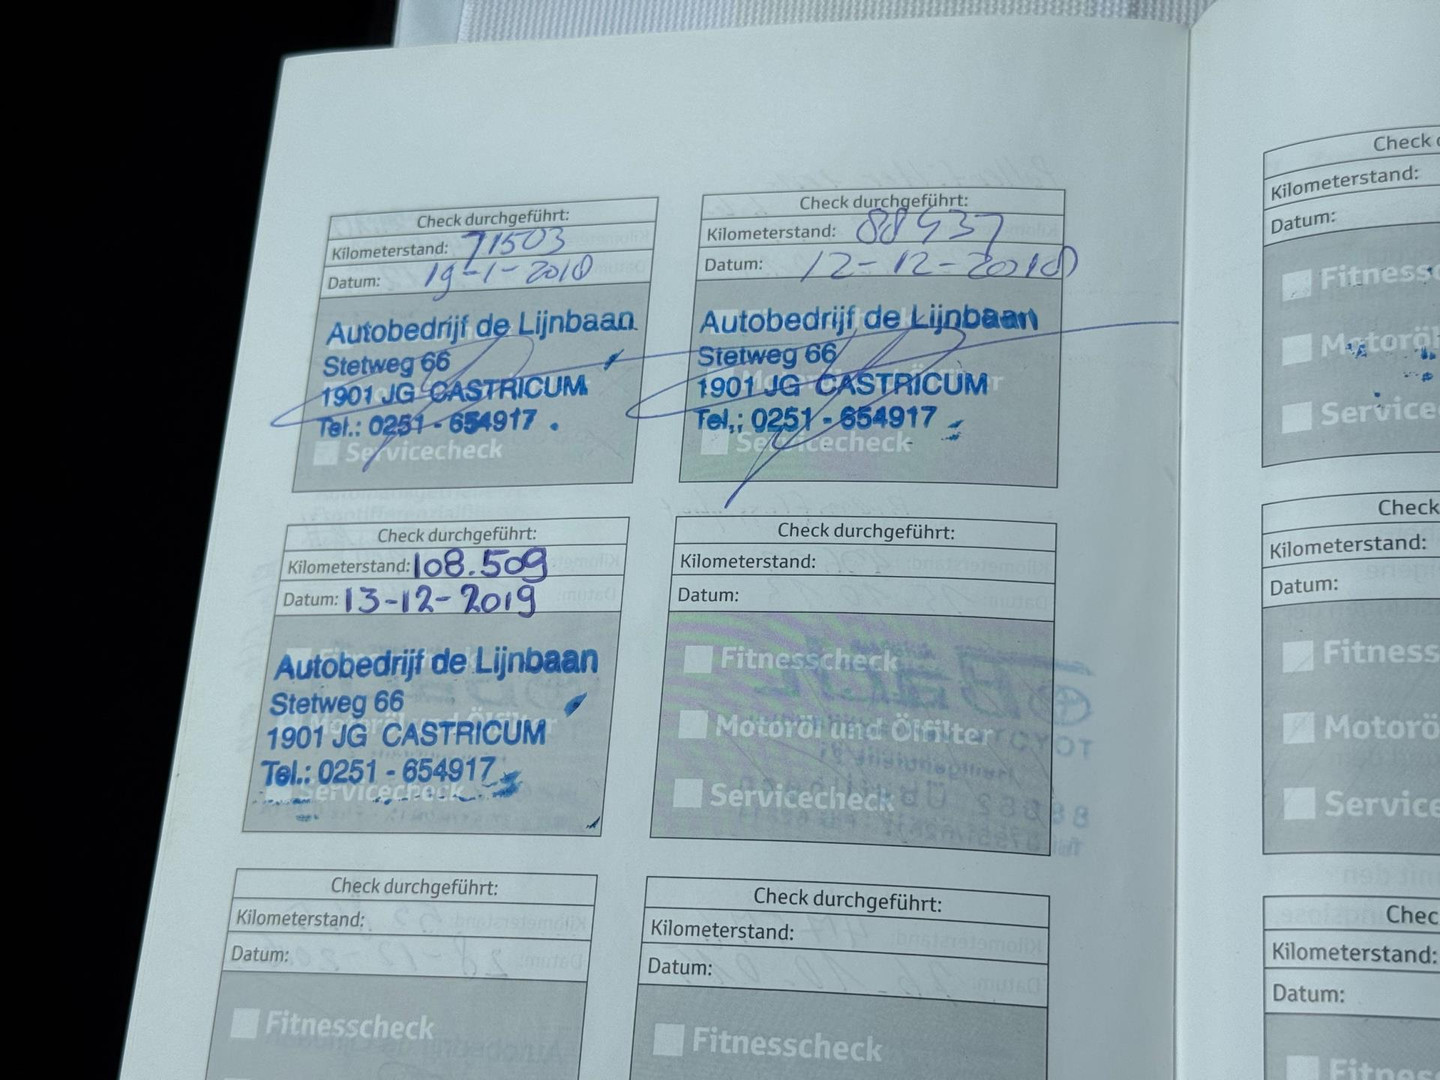 Check durchgeführt:
Kilometerstand: 71503
Datum: 19-1-2018
Autobedrijf de Lijnbaan
Stetweg 66
1901 JG CASTRICUM
Tel.: 0251 - 654917
Servicecheck
Check durchgeführt:
Kilometerstand: 88937
Datum: 12-12-2018
Autobedrijf de Lijnbaan
Stetweg 66
1901 JG CASTRICUM
Tel.: 0251 - 654917
Servicecheck
Check durchgeführt:
Kilometerstand: 108.509
Datum: 13-12-2019
Autobedrijf de Lijnbaan
Stetweg 66
1901 JG CASTRICUM
Tel.: 0251 - 654917
Servicecheck
Check durchgeführt:
Kilometerstand:
Datum:
Fitnesscheck
Motoröl und Ölfilter
Servicecheck
Check durchgeführt:
Kilometerstand:
Datum:
Fitnesscheck
Check durchgeführt:
Kilometerstand:
Datum:
Fitnesscheck
Check
Kilometerstand:
Datum:
Check
Kilometerstand:
Datum:
Kilometerstand:
Datum: